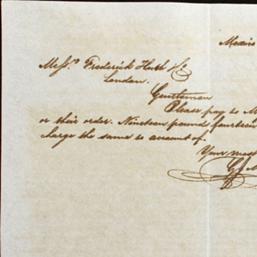 Mexic
Mess.rs Frederick Huth & Co
London.
Gentlemen
Please pay to M
or their order. Nineteen pound fourteen
charge the same to account of.
Your most